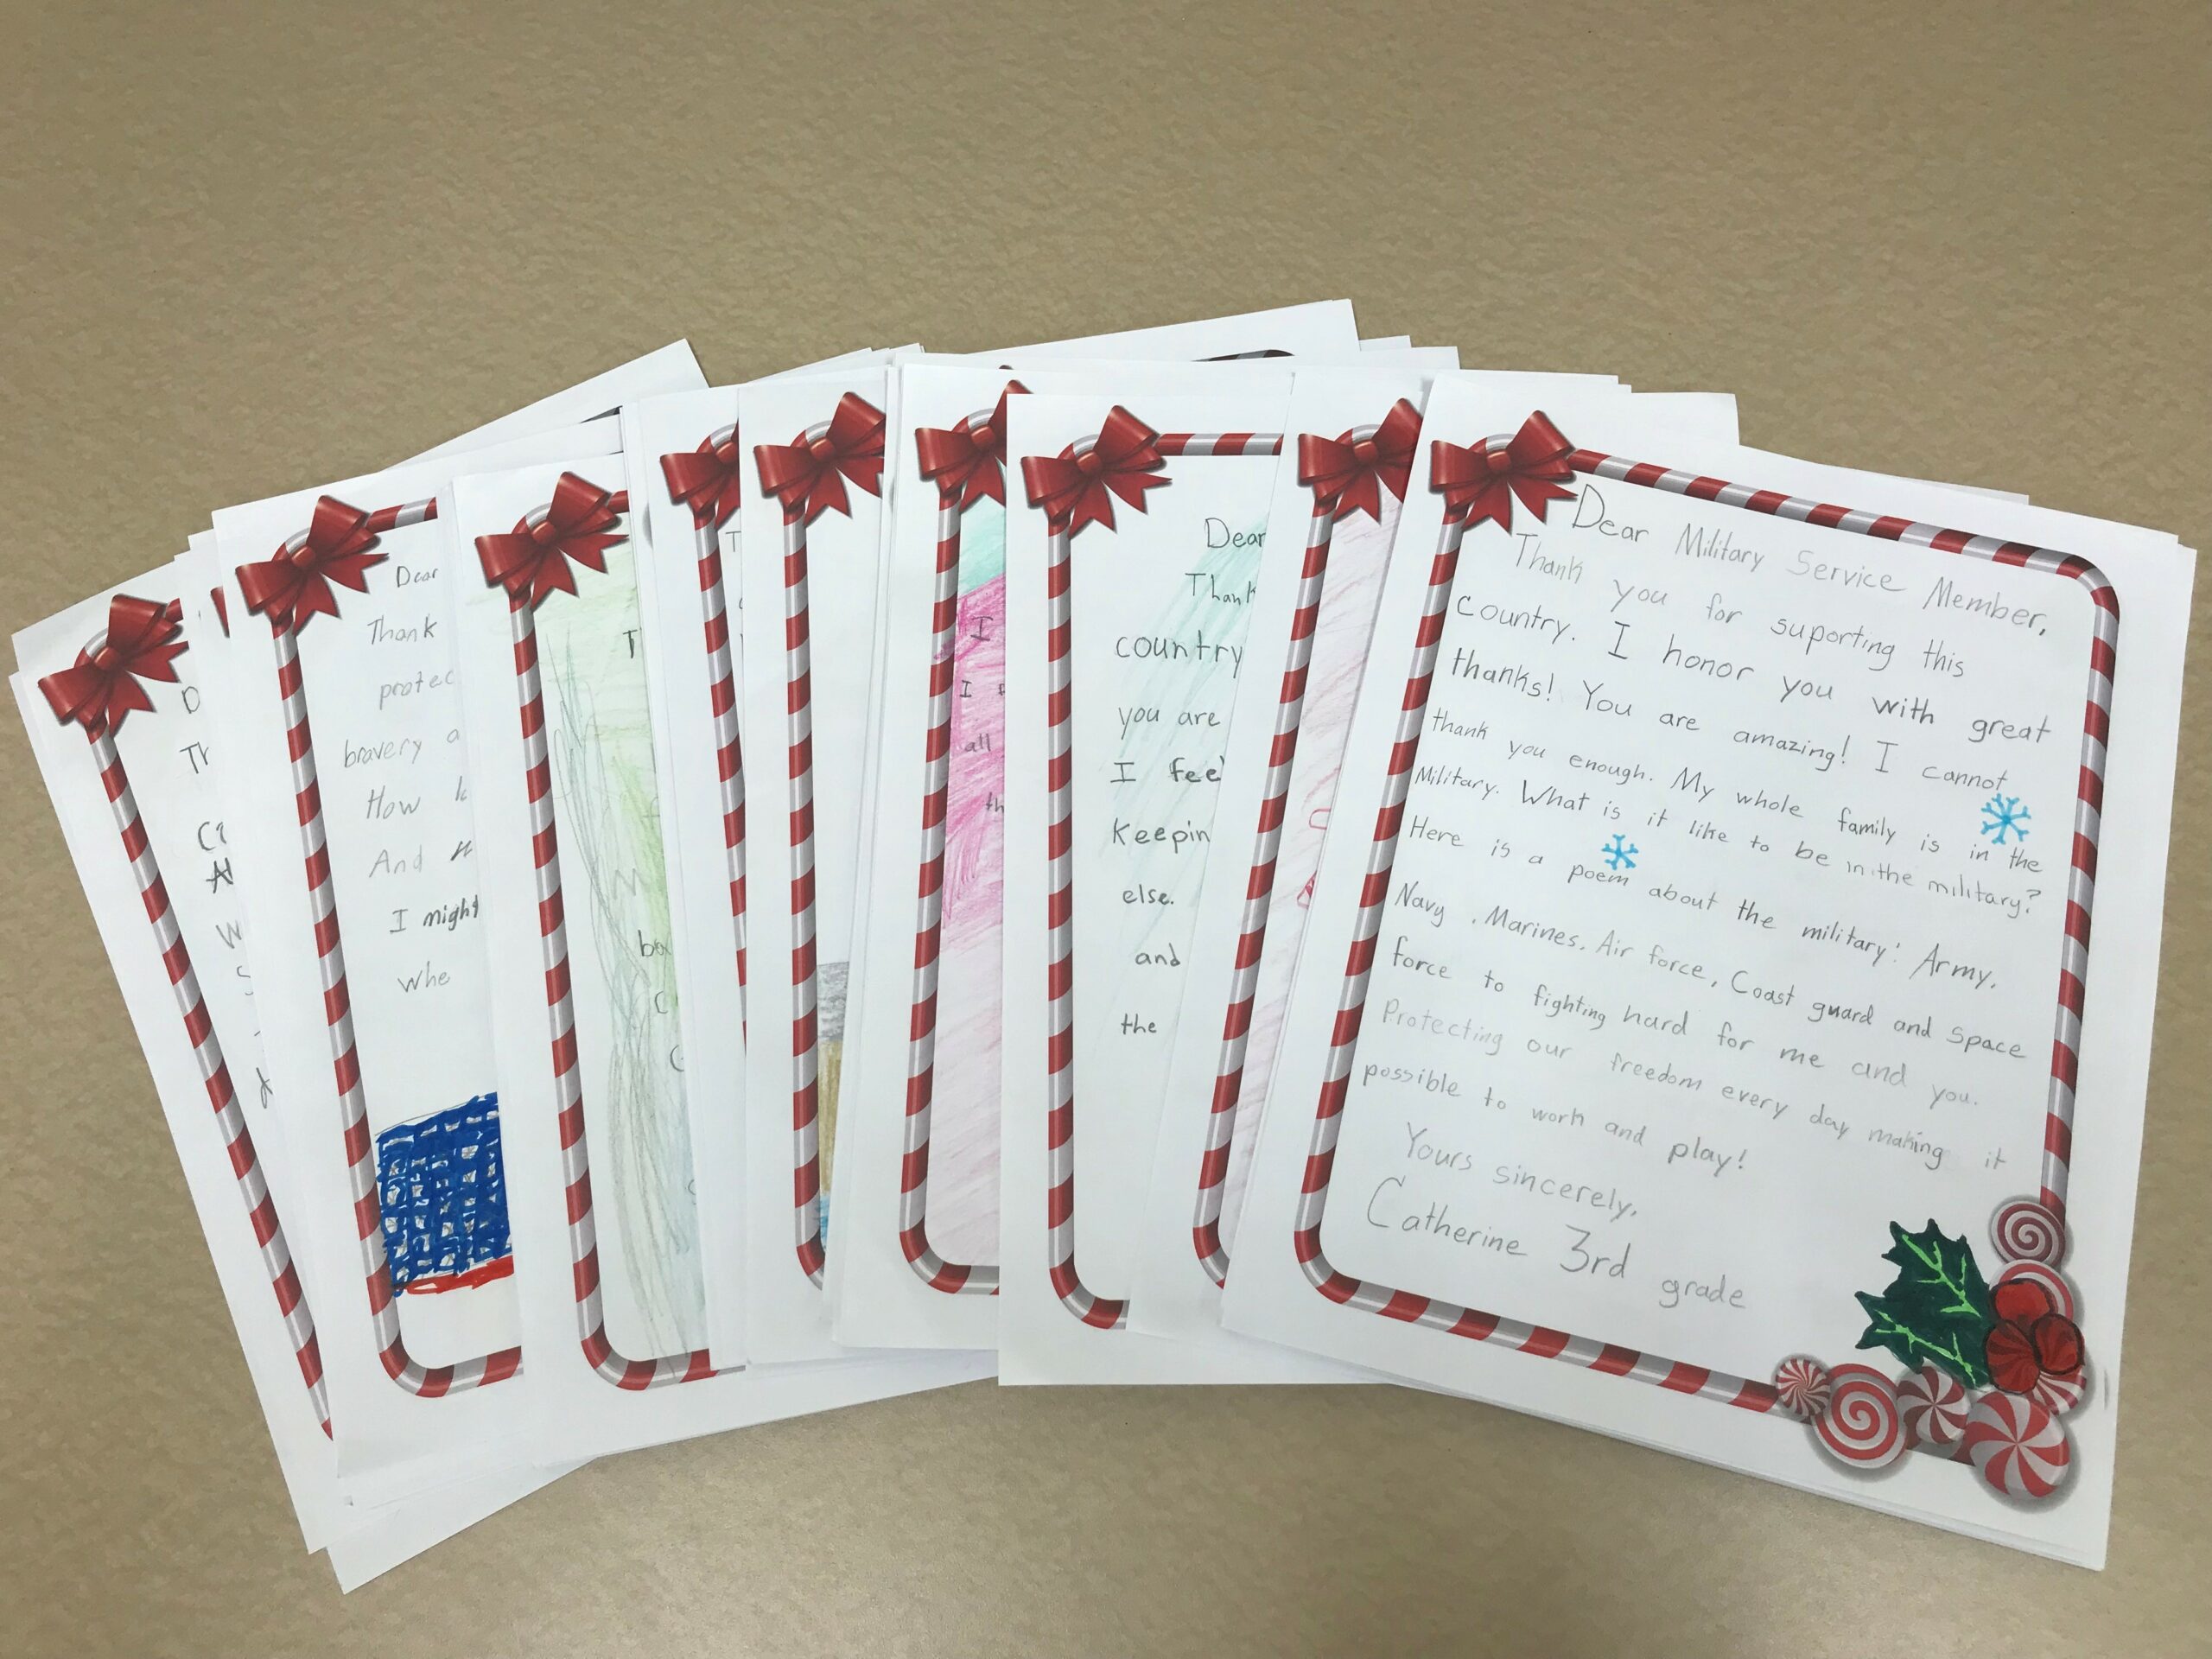 Dear Military Service Member,
Thank you for suporting this
Country. I honor you with great
thanks! You are amazing! I cannot
thank you enough. My whole family is in the
Military. What is it like to be in the military?
Here is a poem about the military: Army,
Navy, Marines, Air force, Coast guard and space
force to fighting hard for me and you.
Protecting our freedom every day making it
possible to work and play!
Yours sincerely,
Catherine 3rd grade
Dear
Thank
country
you are
I feel
Keepin
else.
and
the
I
I
all
th
Dear
Thank
protec
bravery a
How
And
I might
whe